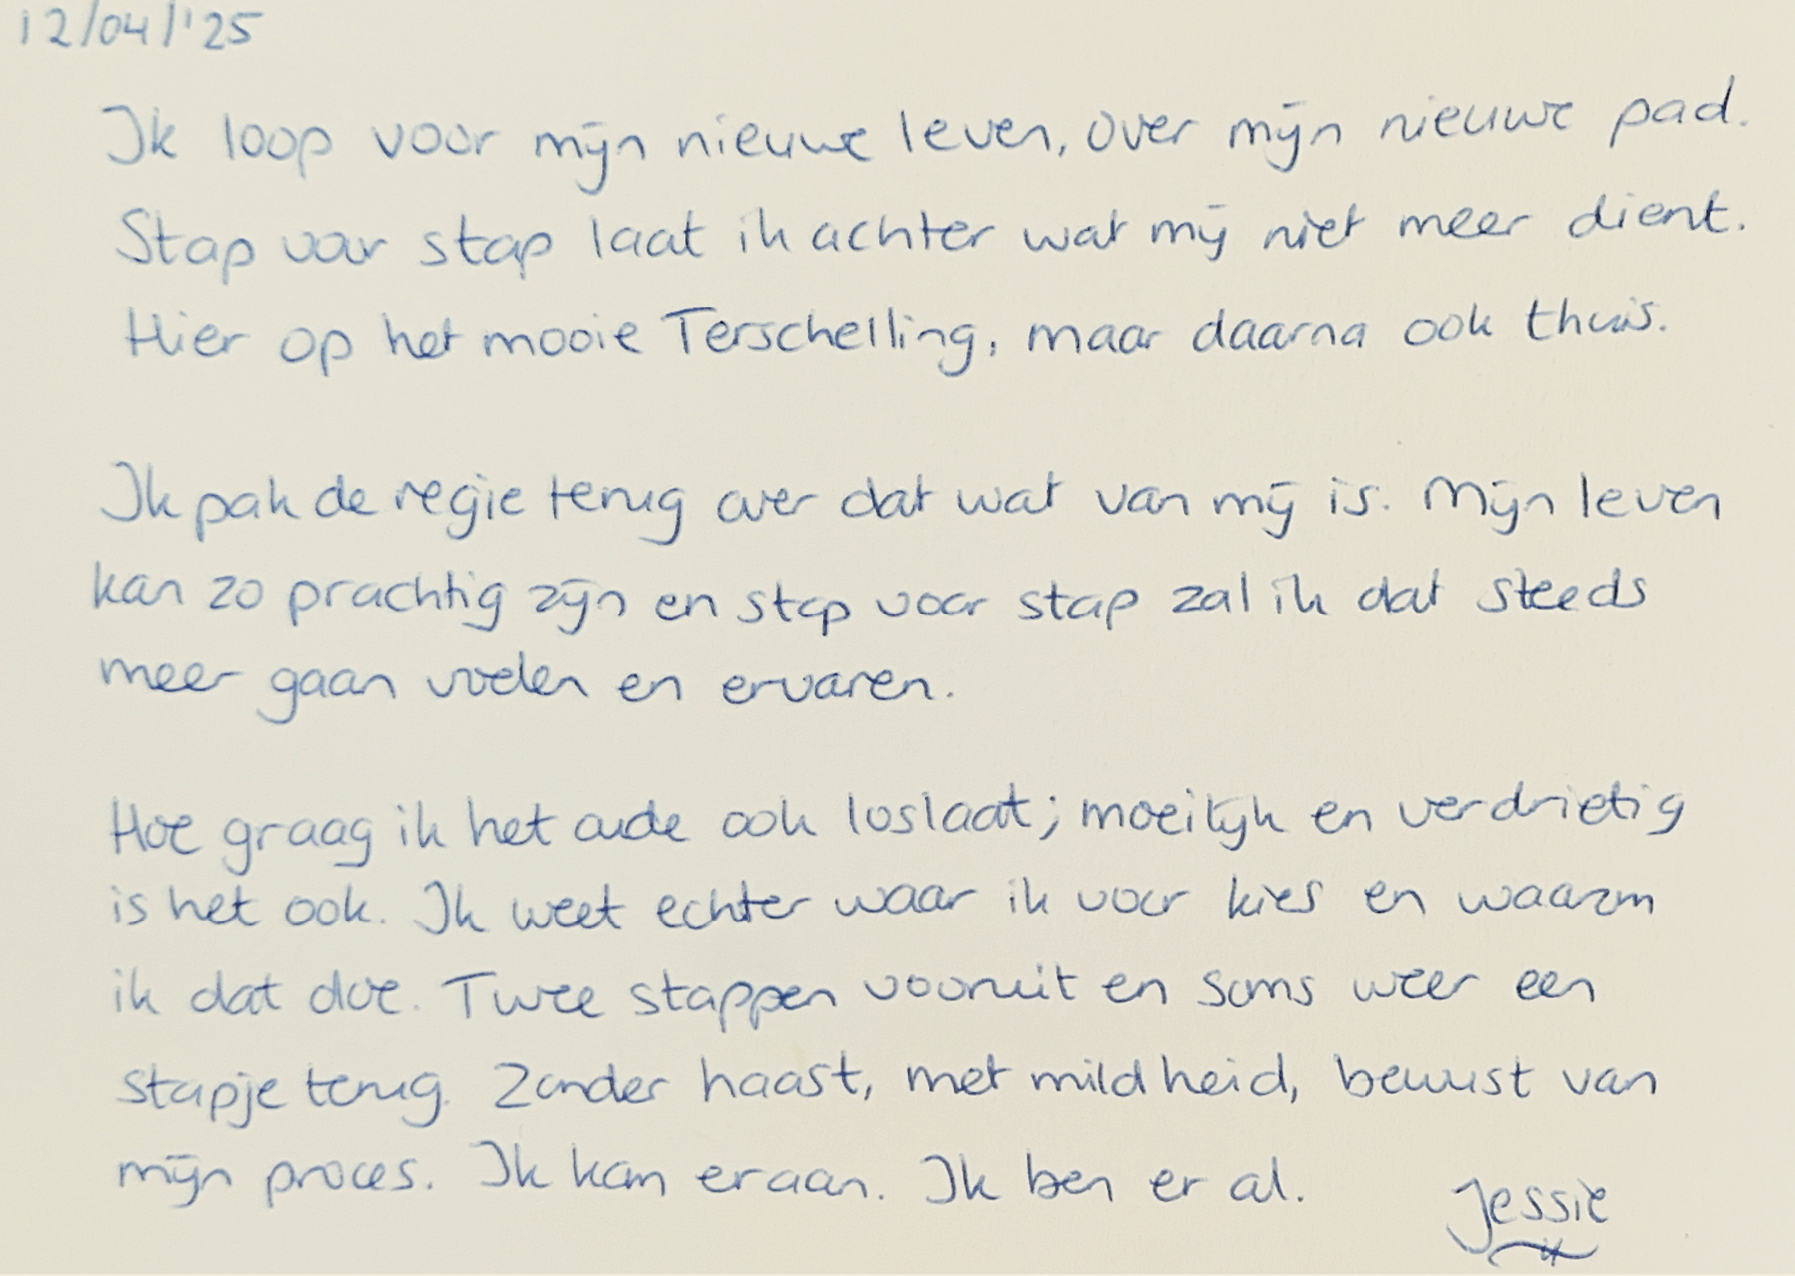 12/04/'25
Ik loop voor mijn nieuwe leven, over mijn nieuwe pad.
Stap voor stap laat ik achter wat mij niet meer dient.
Hier op het mooie Terschelling, maar daarna ook thuis.
Ik pak de regie terug over dat wat van mij is. Mijn leven
kan zo prachtig zijn en stap voor stap zal ik dat steeds
meer gaan voelen en ervaren.
Hoe graag ik het oude ook loslaat; moeilijk en verdrietig
is het ook. Ik weet echter waar ik voor kies en waarom
ik dat doe. Twee stappen vooruit en soms weer een
stapje terug. Zonder haast, met mildheid, bewust van
mijn proces. Ik kom eraan. Ik ben er al.
Jessie